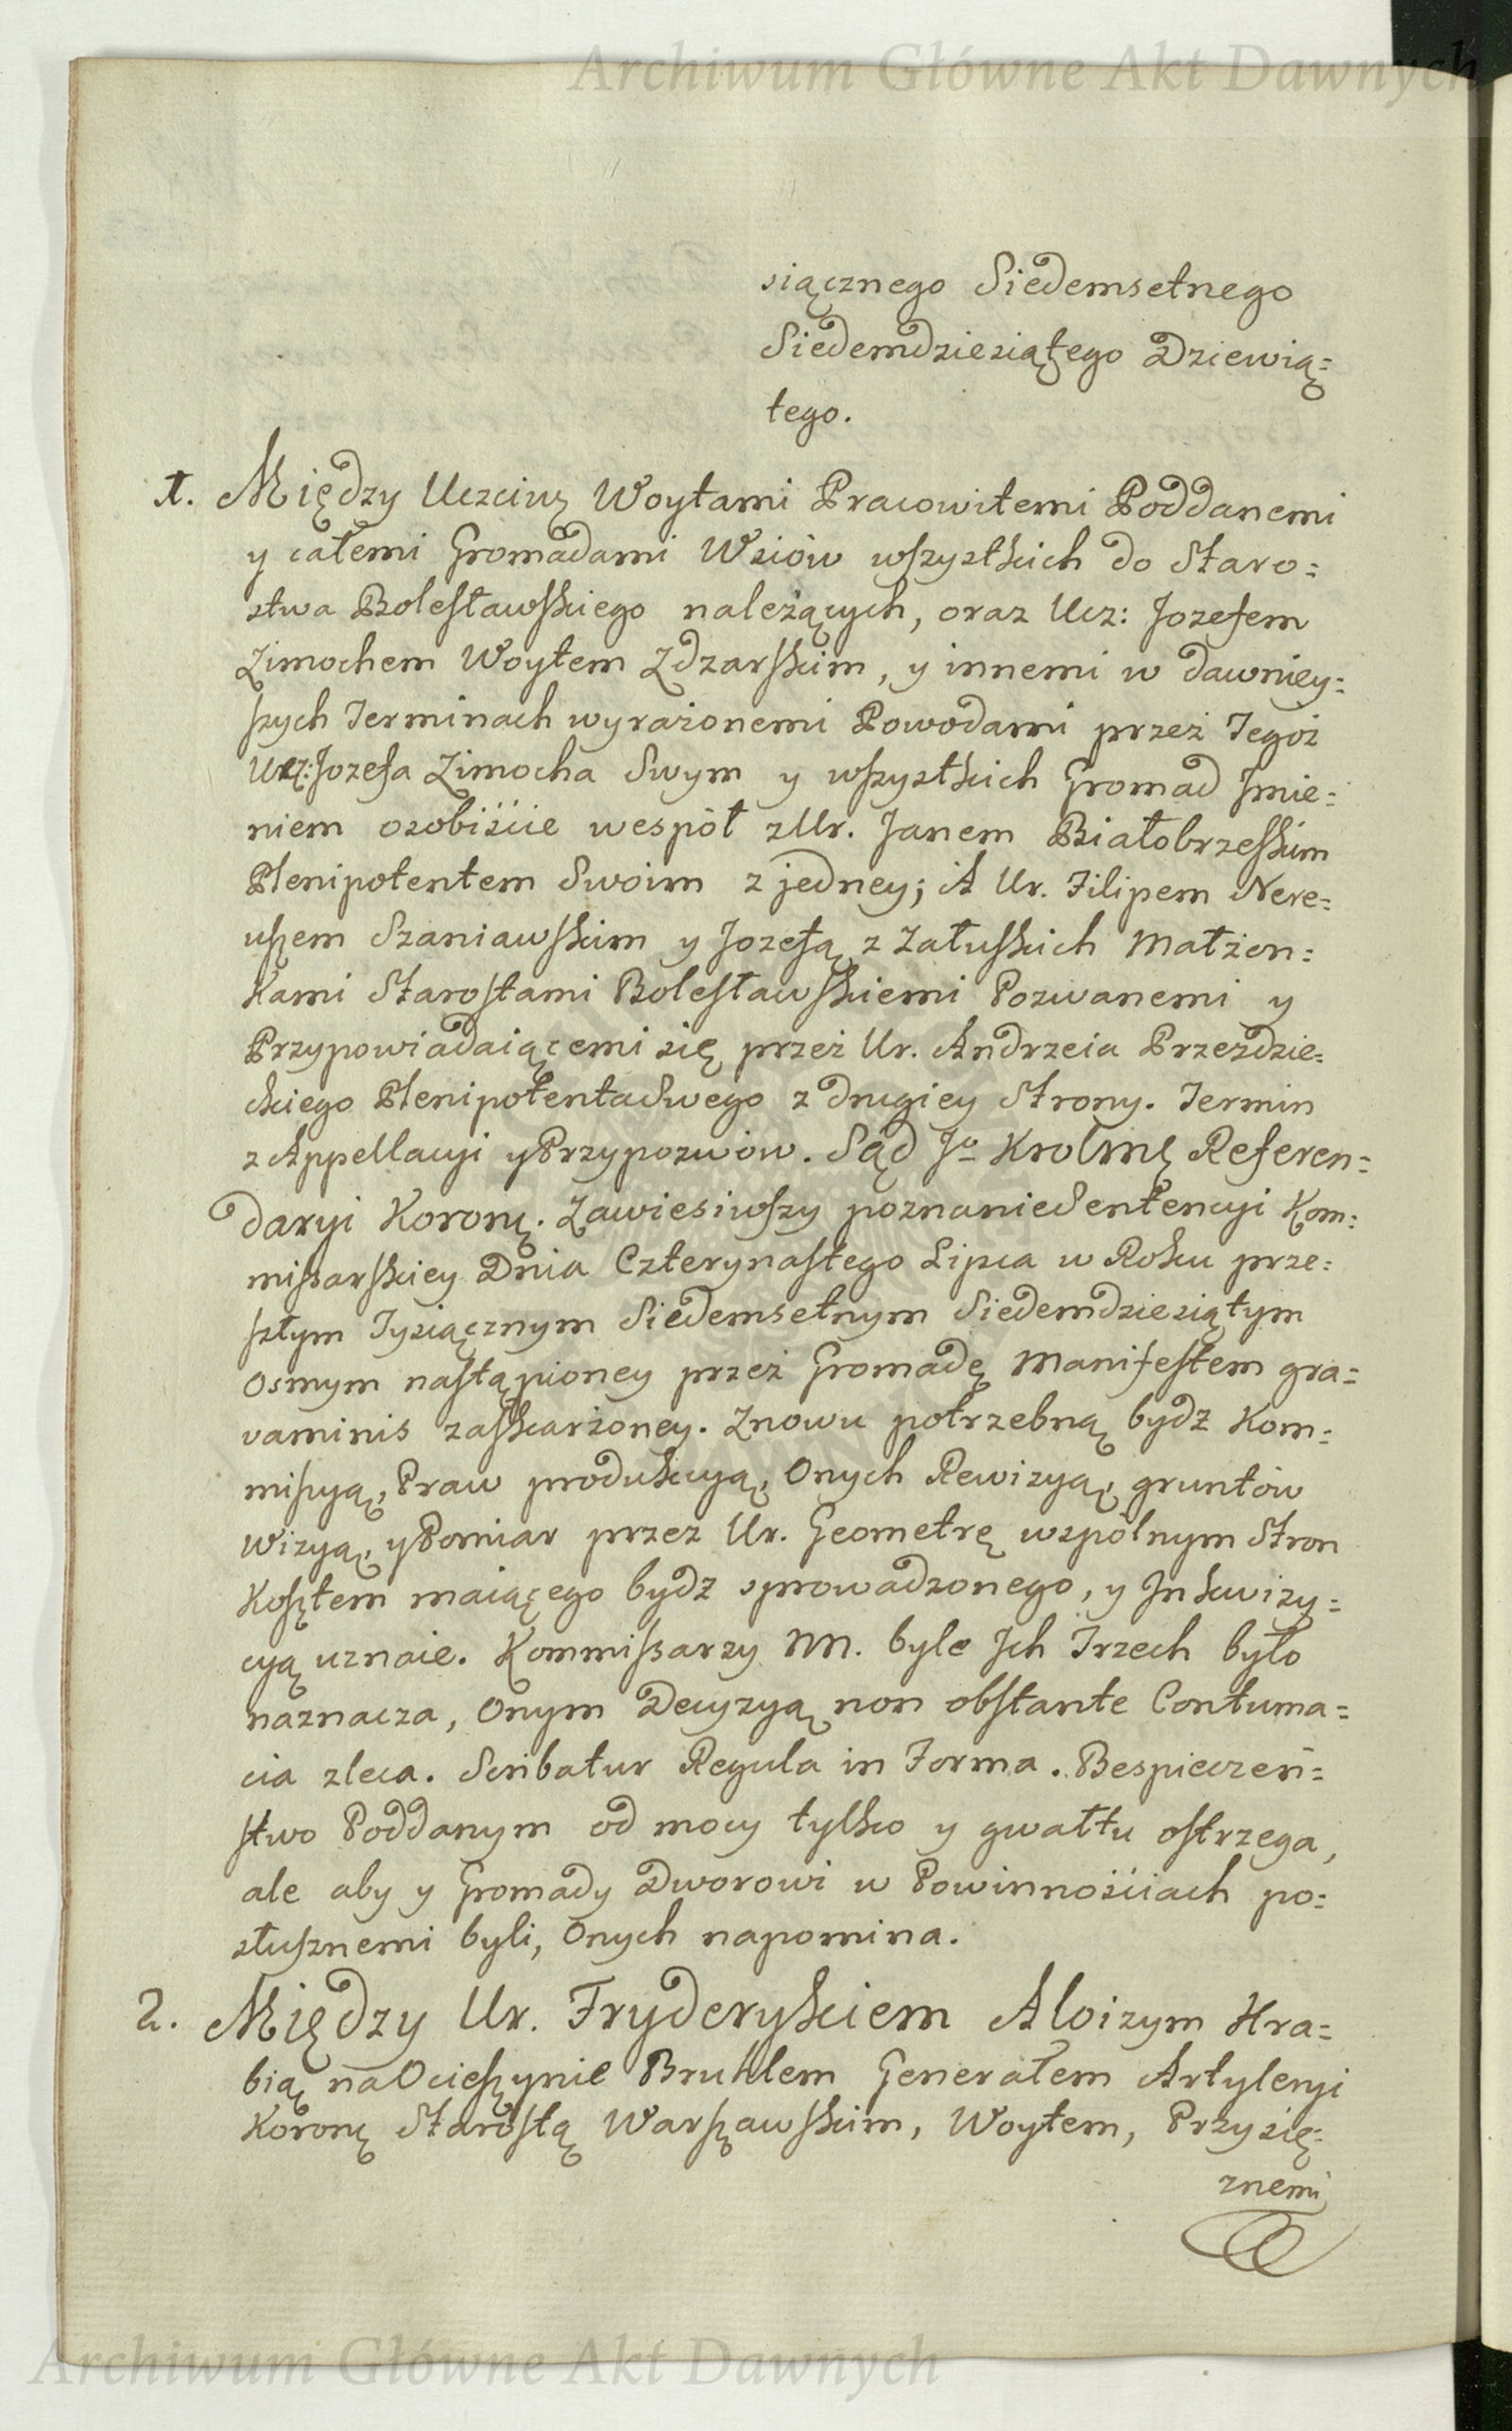 Archiwum Główne Akt Dawnych
siącznego Siedemsetnego
Siedemdziesiątego Dziewią=
tego.
1. Między Uczciwę Woytami Pracowitemi Poddanemi
y całemi Gromadami Wsiów wszystkich do Staro=
stwa Bolesławskiego należących, oraz Ucz: Jozefem
Zimochem Woytem Zdzarskim, y innemi w dawniey=
szych Terminach wyrażonemi Powodami przez Tegoż
Ucz: Jozefa Zimocha Swym y wszystkich Gromad Jmie=
niem osobiście wespół z Ur. Janem Białobrzeskim
Plenipotentem Swoim z jedney; A Ur. Filipem Nere=
uszem Szaniawskim y Jozefą z Załuskich Małżon=
kami Starostami Bolesławskiemi Pozwanemi y
Przypowiadaiącemi się przez Ur. Andrzeia Przezdzie=
ckiego Plenipotenta Swego z drugiey Strony. Termin
z Appellacyi y Przypozwów. Sąd Jo Krolmę Referen=
daryi Koronę. Zawiesiwszy poznanie Sentencyi Kom=
missarskiey Dnia Czterynastego Lipca w Roku prze=
szłym Tysiącznym Siedemsetnym Siedemdziesiątym
Osmym nastąpioney przez Gromadę Manifestem gra=
vaminis zaskarżoney. Znowu potrzebną bydz Kom=
missyą, Praw produkcyą, Onych Rewizyą, gruntów
Wizyą, y Pomiar przez Ur. Geometrę wspólnym Stron
Kosztem maiącego bydz sprowadzonego, y Jnkwizy=
cyą uznaie. Kommissarzy NN. byle Jch Trzech było
naznacza, Onym Decyzyą non obstante Contuma=
cia zleca. Scribatur Regula in Forma. Bespieczeń=
stwo Poddanym od mocy tylko y gwałtu ostrzega,
ale aby y Gromady Dworowi w Powinnościach po=
słusznemi byli, Onych napomina.
2. Między Ur. Fryderykiem Aloizym Hra=
bią na Ocieszynie Bruhlem Generałem Artyleryi
Koronę Starostą Warszawskim, Woytem, Przysię=
znemi
Archiwum Główne Akt Dawnych